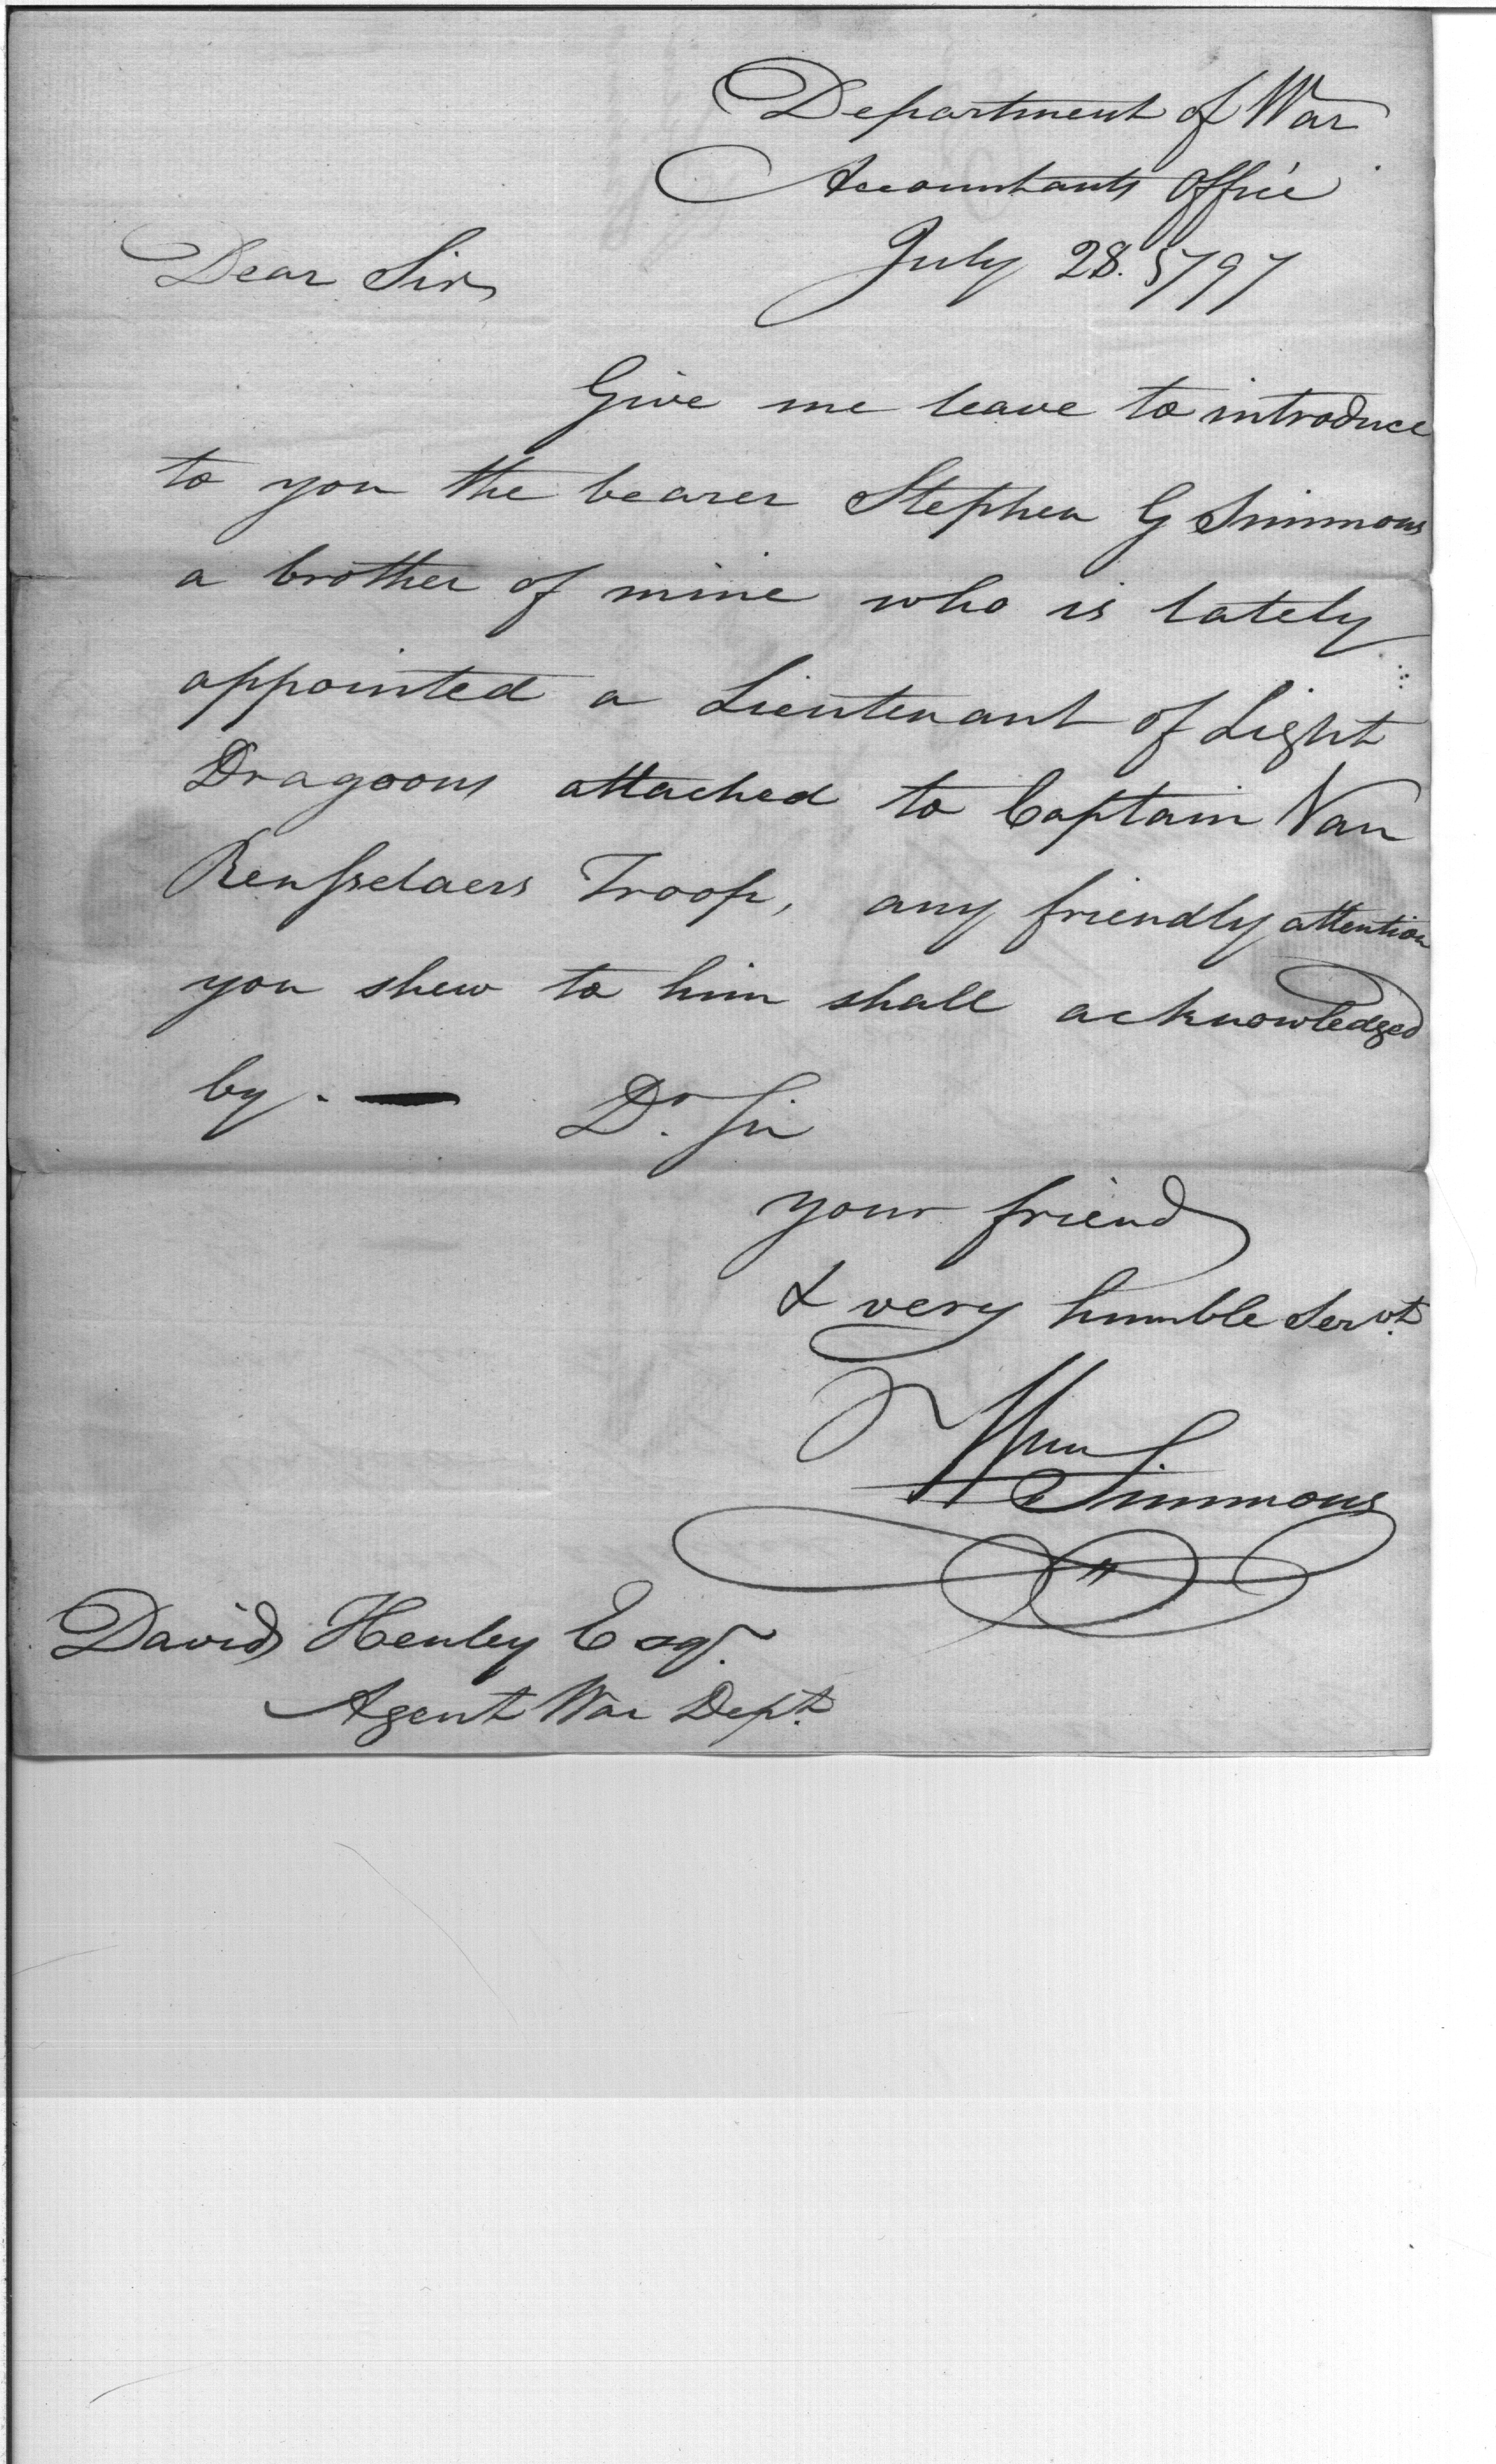 Department of War
Accountants Office
July 28. 1797
Dear Sir
Give me leave to introduce
to you the bearer Stephen G Simmons
a brother of mine who is lately
appointed a Lieutenant of Light
Dragoons attached to Captain Van
Rensselaers Troop, any friendly attention
you shew to him shall acknowledged
by. — Dr. Sir
your friend
& very humble Servt.
Wm Simmons
David Henley Esqr.
Agent War Dept.